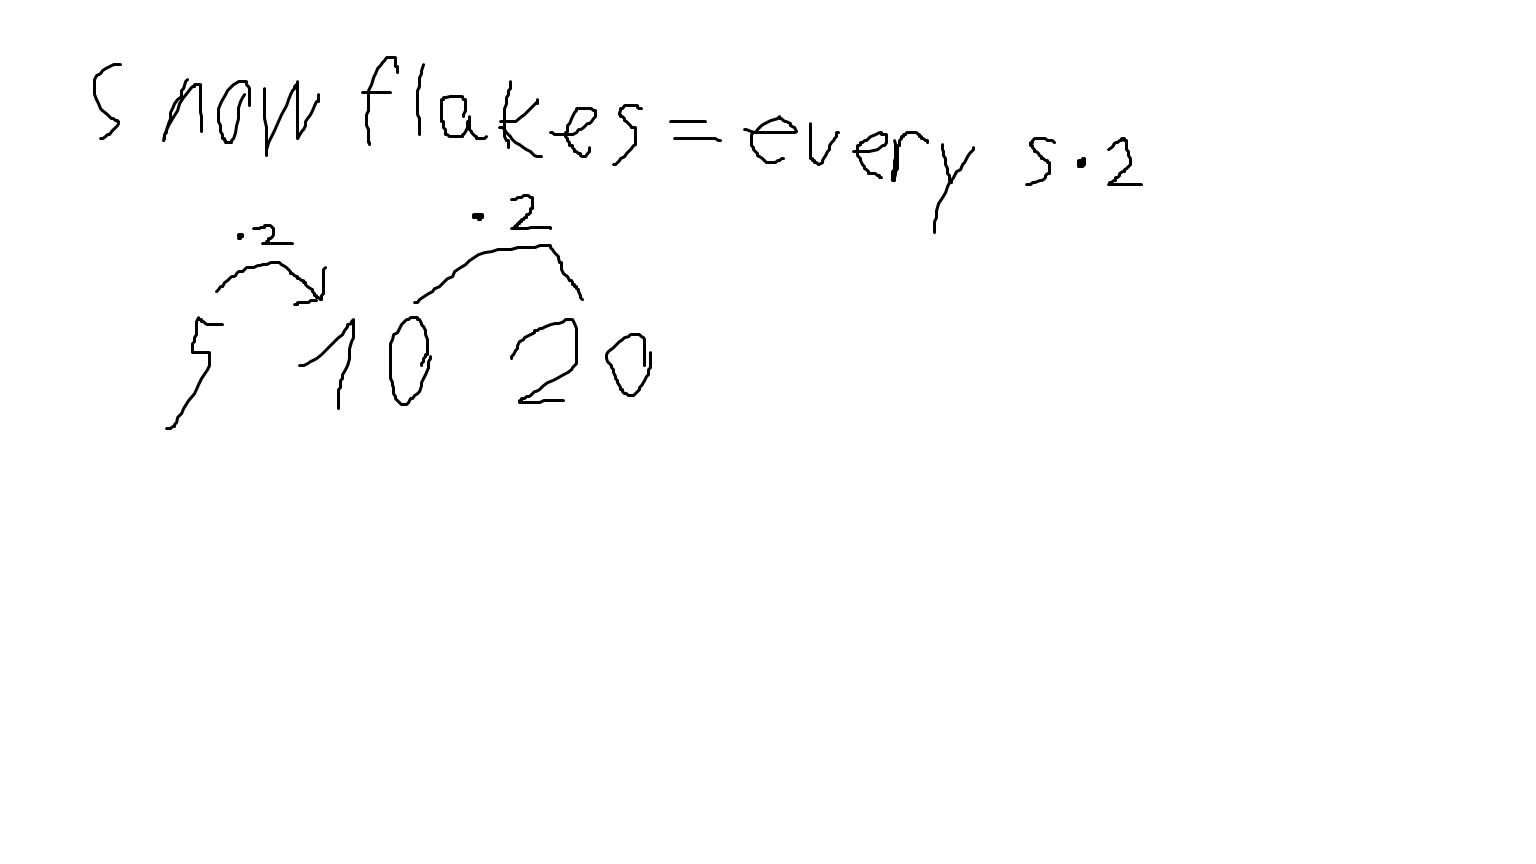 snowflakes = every s · 2
· 2 · 2
5 10 20